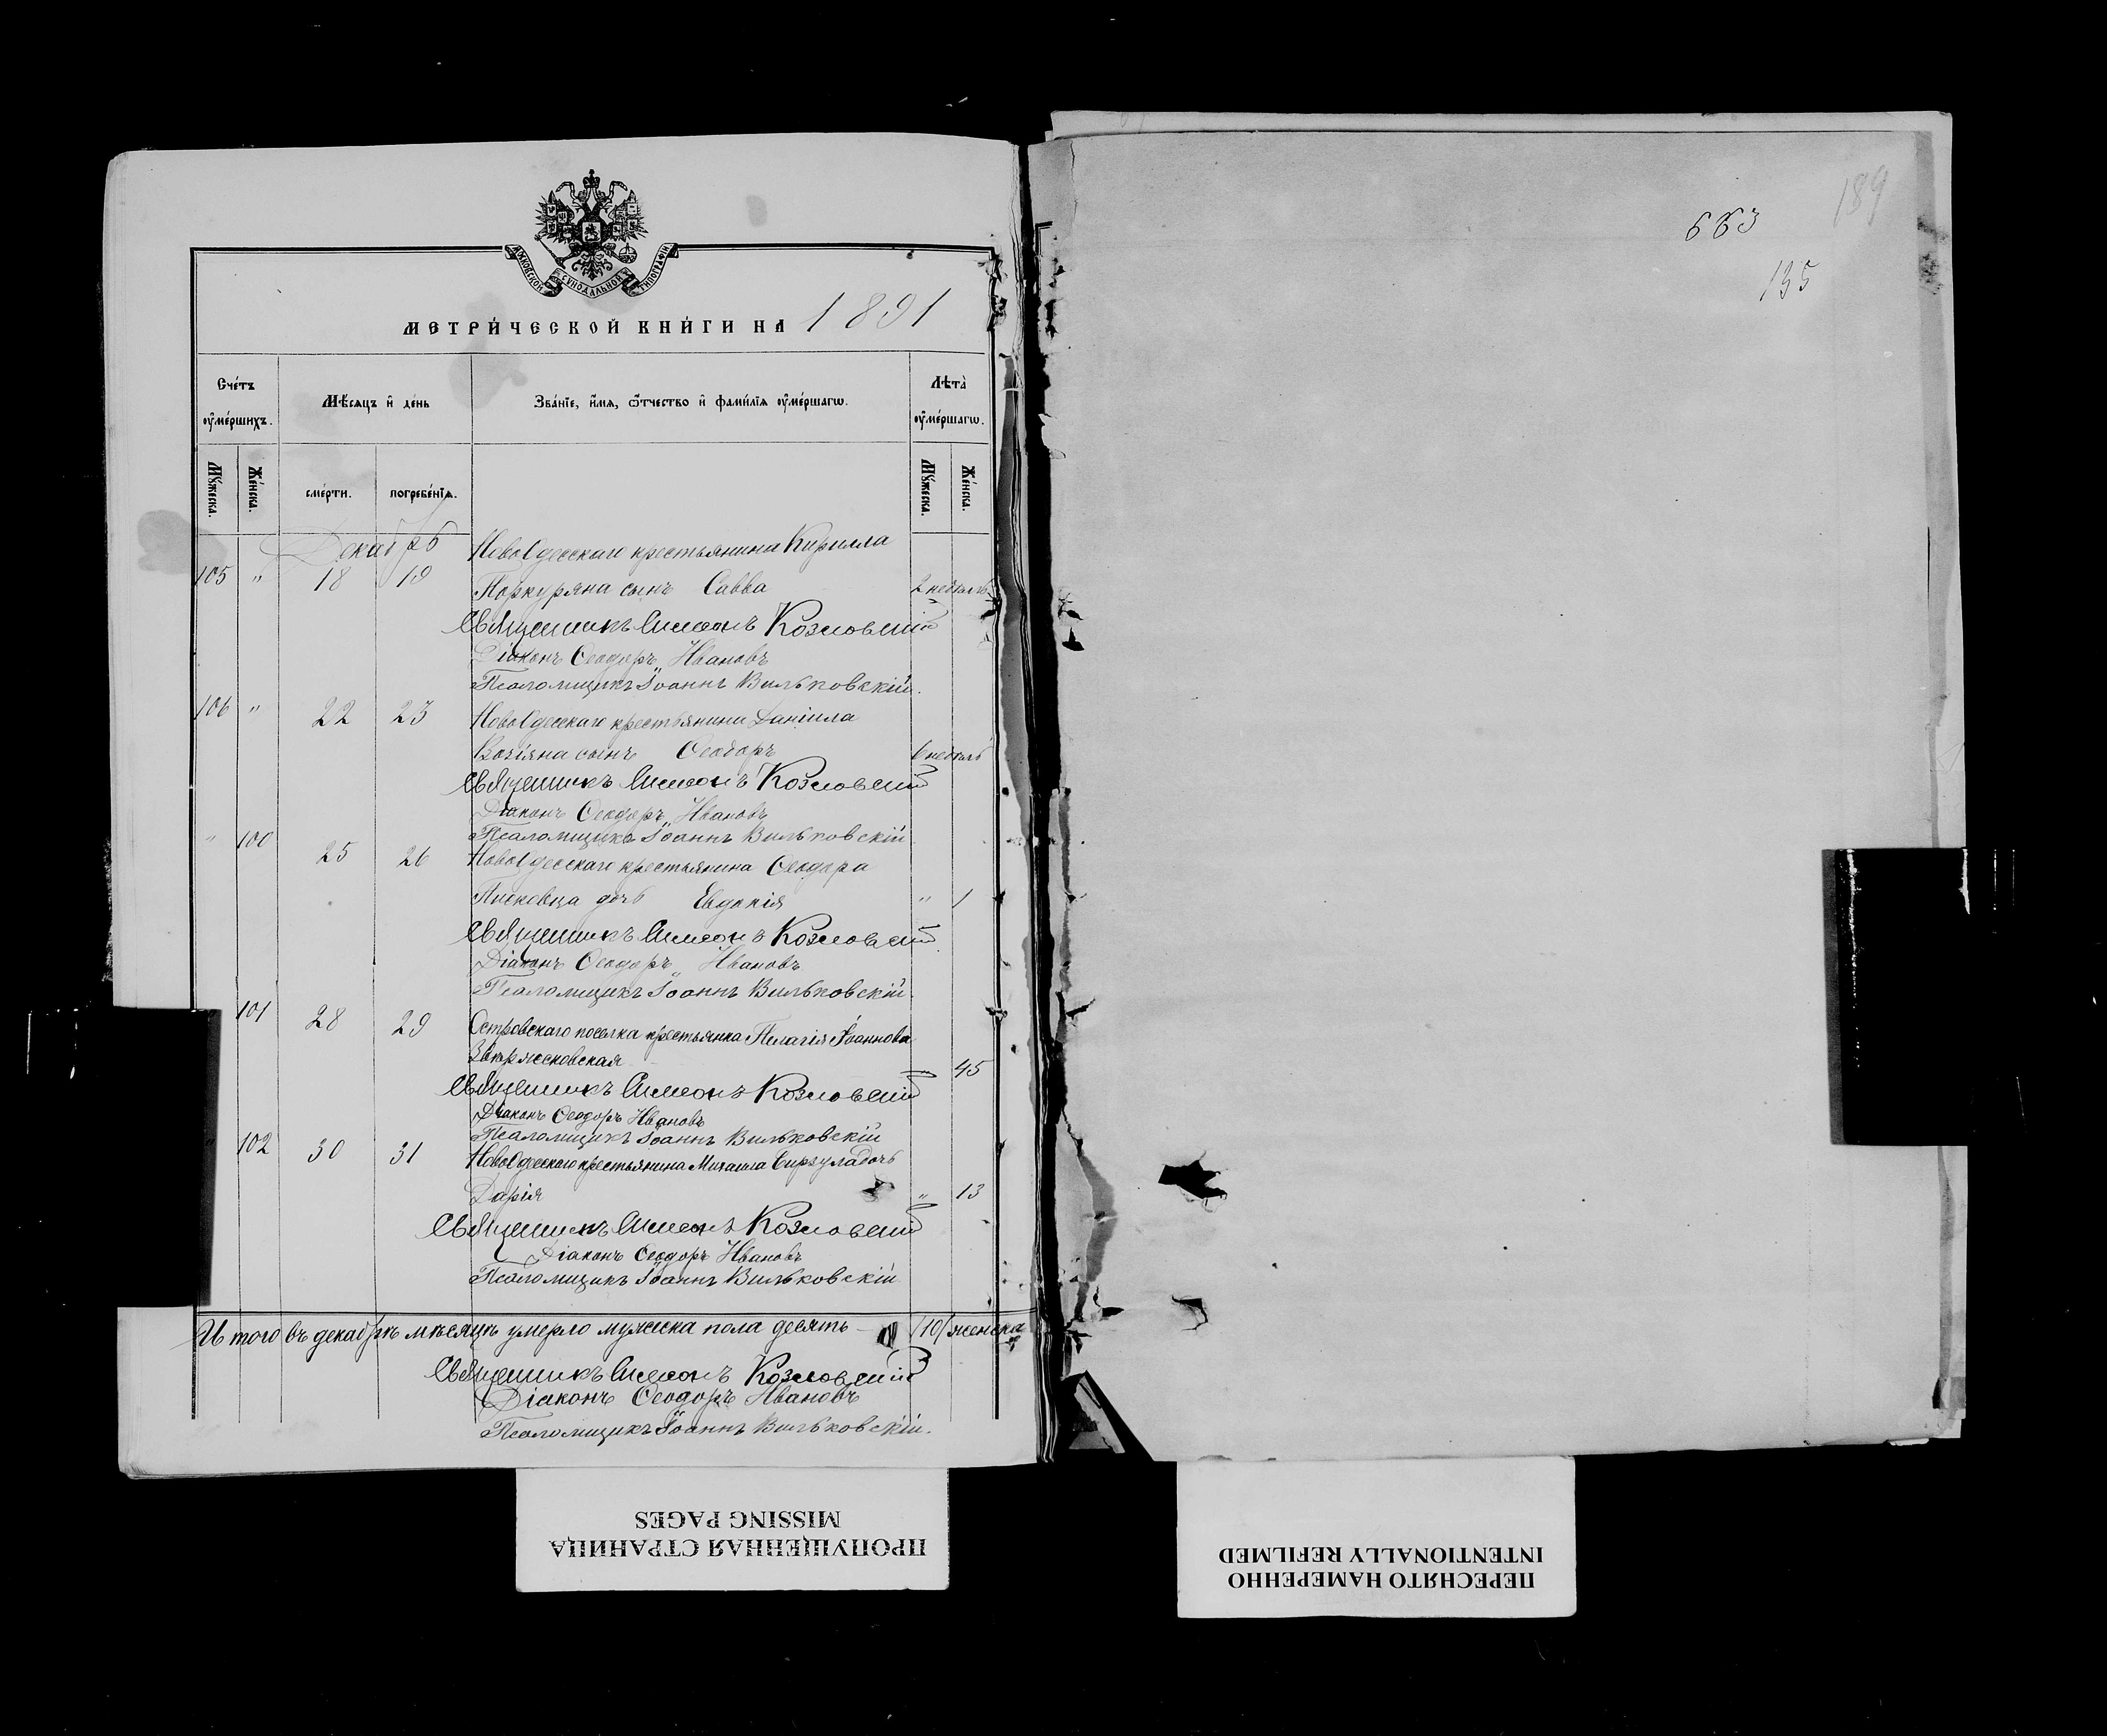 ХАРКОВСКОЙ СѴНОДАЛЬНОЙ ТИПОГРАФІИ
МЕТРИ́ЧЕСКОЙ КНИ́ГИ НА 1891
Сче́тъ оу҆ме́ршихъ.
Мѣ́сяцъ и҆ де́нь
Зва́нїе, и҆́мѧ, ѻ҆́тчество и҆ фами́лїѧ оу҆ме́ршагѡ.
Лѣта̀ оу҆ме́ршагѡ.
Мꙋ́жеска.
Же́нска.
сме́рти.
погребе́нїѧ.
Мꙋ́жеска.
Же́нска.
Декабрь
НовоОдесскаго крестьянина Кирилла
105 " 18 19 Поркуряна сынъ Савва 2 недѣль
Священникъ Симеонъ Козловскій
Діаконъ Ѳеодоръ Ивановъ
Псаломщикъ Іоаннъ Вильковскій.
106 " 22 23 НовоОдесскаго крестьянина Даніила
Возіяна сынъ Ѳеодоръ 6 недѣль
Священникъ Симеонъ Козловскій
Діаконъ Ѳеодоръ Ивановъ
Псаломщикъ Іоаннъ Вильковскій.
" 100 25 26 НовоОдесскаго крестьянина Ѳеодора
дочь Евдокія " 1
Священникъ Симеонъ Козловскій
Діаконъ Ѳеодоръ Ивановъ
Псаломщикъ Іоаннъ Вильковскій.
101 28 29 Островскаго поселка крестьянка Пелагія Іоаннова
45
Священникъ Симеонъ Козловскій
Діаконъ Ѳеодоръ Ивановъ
Псаломщикъ Іоаннъ Вильковскій
102 30 31 НовоОдесскаго крестьянина Михаила дочь
Дарія " 13
Священникъ Симеонъ Козловскій
Діаконъ Ѳеодоръ Ивановъ
Псаломщикъ Іоаннъ Вильковскій
И того въ декабрѣ мѣсяцѣ умерло мужеска пола десять /10/ женска
Священникъ Симеонъ Козловскій
Діаконъ Ѳеодоръ Ивановъ
Псаломщикъ Іоаннъ Вильковскій.
189
663
135
ПРОПУЩЕННАЯ СТРАНИЦА
MISSING PAGES
ПЕРЕСНЯТО НАМЕРЕННО
INTENTIONALLY REFILMED